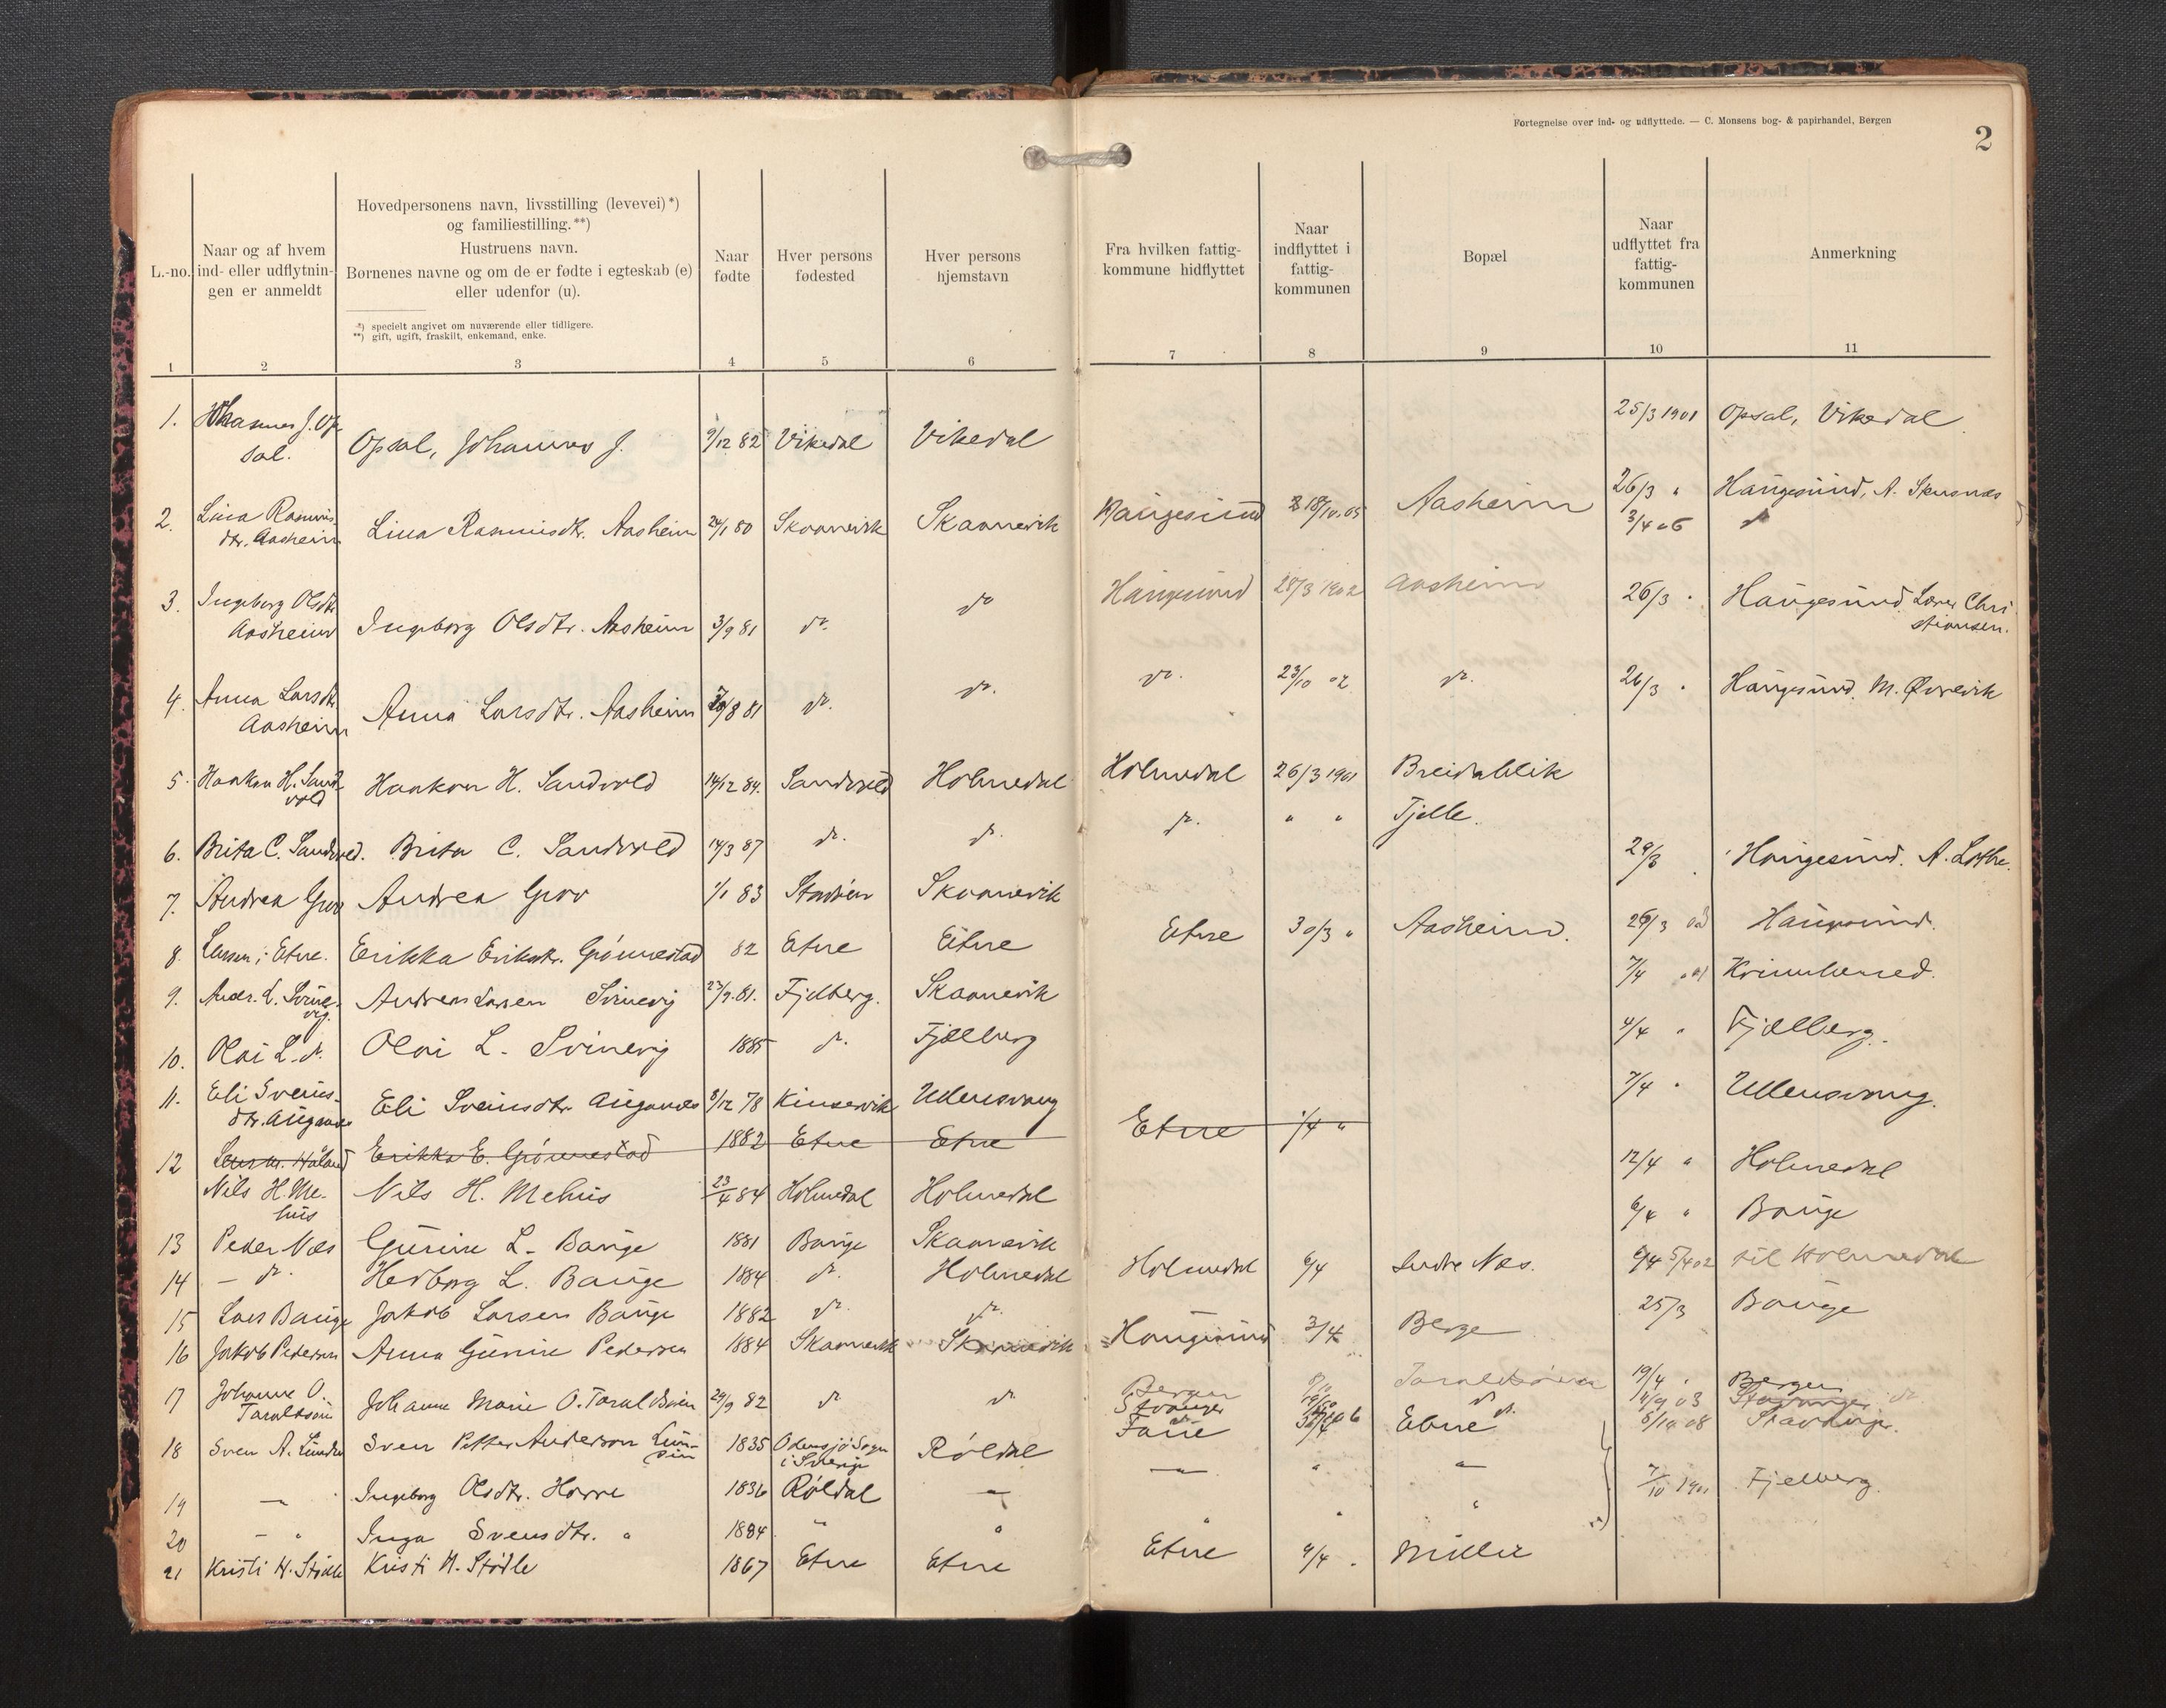 Fortegnelse over ind- og udflyttede. — C. Monsens bog- & papirhandel, Bergen
2
L.-no.
Naar og af hvem
ind- eller udflytnin-
gen er anmeldt
Hovedpersonens navn, livsstilling (levevei)*)
og familiestilling.**)
Hustruens navn.
Børnenes navne og om de er fødte i egteskab (e)
eller udenfor (u).
*) specielt angivet om nuværende eller tidligere.
**) gift, ugift, fraskilt, enkemand, enke.
Naar
fødte
Hver persons
fødested
Hver persons
hjemstavn
Fra hvilken fattig-
kommune hidflyttet
Naar
indflyttet i
fattig-
kommunen
Bopæl
Naar
udflyttet fra
fattig-
kommunen
Anmerkning
1 2 3 4 5 6 7 8 9 10 11
1. Johannes J. Op
sal. Opsal, Johannes J. 9/12 82 Vikedal Vikedal 25/3 1901 Opsal, Vikedal
2. Lina Rasmus
dtr. Aasheim Lina Rasmusdtr. Aasheim 24/1 80 Skaanevik Skaanevik Haugesund 18/10.05 Aasheim 26/3 " Haugesund, A.
3/4 06 do
3. Ingeborg Olsdtr
Aasheim Ingeborg Olsdtr. Aasheim 3/9 81 do. do Haugesund 28/3 1902 Aasheim 26/3 " Haugesund Lærer Chri
stiansen.
4. Anna Larsdtr
Aasheim Anna Larsdtr. Aasheim /8 81 do. do. do. 23/10 02 do. 26/3 " Haugesund. M. Ølvevik
5. Haakon H. Sand
vold Haakon H. Sandvold 14/12 84. Sandvold Holmedal Holmedal 26/3 1901 Breidablik
6. Brita C. Sandvold. Brita C. Sandvold 14/3 87 do. do. do. " " Tjelle.
7. Andrea Grov Andrea Grov 1/1 83 Skaanevik 29/3 Haugesund. A.
8. i Etne. Erikka Eriksdtr. Grønnestad 82 Etne Etne Etne 30/3 " Aasheim. 29/3 Haugesund.
9. Andr. L. Svine-
vig. Andreas Larsen Svinevig 23/9.81. Fjelberg. Skaanevik 7/4 Kvinnherred.
10. Olai L. do. Olai L. Svinevig 1885 do. Fjelberg 4/4 " Fjelberg.
11. Eli Sveins-
dtr. Auganæs Eli Sveinsdtr. Auganæs 8/12 78 Kinservik Ullensvang 7/4 " Ullensvang.
12 Haland Erikka E. Grønnestad 1882 Etne Etne Etne 1/4 "
Nils H. Me-
hus Nils H. Mehus 23/4 84 Holmedal Holmedal 12/4 " Holmedal
13 Peder Næs Gurine L. Bauge 1881 Bauge Skaanevik 6/4 " Bauge
14 — do. Hedborg L. Bauge 1884 do. Holmedal Holmedal 6/4 Indre Næs. 5/4 02 til Holmedal
15 Lars Bauge Jakob Larsen Bauge 1882 do. do. 25/3 Bauge
16 Jakob Pedersen Anna Gurine Pedersen 1884 Skaanevik Skaanevik Haugesund 3/4 Berge
17 Johanne O.
Taraldsøen Johanne Marie O. Taraldsøen 29/9 82 do do Bergen Taraldsøen 19/4 " Bergen
Stavanger do Stavanger
18 Sven A. Lundin Sven Petter Anderson Lun-
din 1835 Odensjö Sogn
i Sverige Røldal Etne 5/10 08 Stavanger.
19 — Ingeborg Olsdtr. Horre 1836 Røldal — — " — 7/10 1901 Fjelberg.
20 — " Inga Svensdtr. " 1884 " " " " "
21 Kristi H. Støle Kristi H. Støtle 1867 Etne Etne Etne 4/4 . Millie